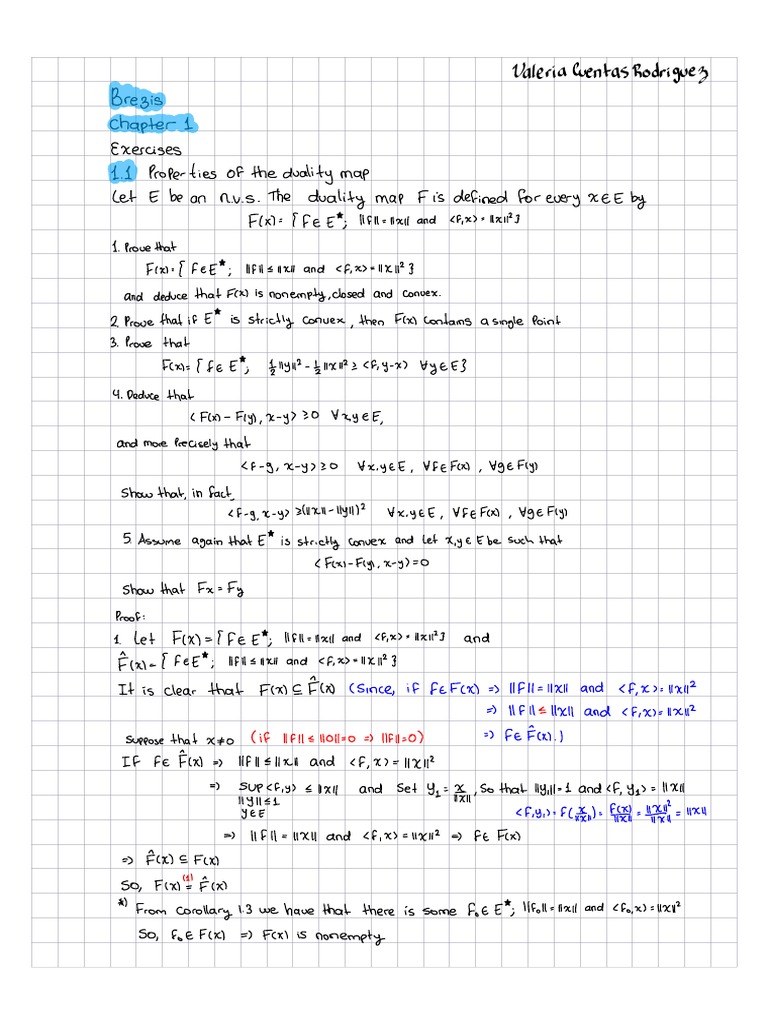 Valeria Cuentas Rodriguez
Brezis
chapter 1
Exercises
1.1 Properties of the duality map
Let E be an n.v.s. The duality map F is defined for every x∈E by
F(x) = {f∈E*; ||f|| = ||x|| and <f,x> = ||x||²}
1. Prove that
F(x) = {f∈E*; ||f|| ≤ ||x|| and <f,x> = ||x||²}
and deduce that F(x) is nonempty, closed and convex.
2. Prove that if E* is strictly convex, then F(x) contains a single point
3. Prove that
F(x) = {f∈E*; ½||y||² - ½||x||² ≥ <f, y-x> ∀y∈E}
4. Deduce that
<F(x) - F(y), x-y> ≥ 0 ∀x,y∈E,
and more precisely that
<f-g, x-y> ≥ 0 ∀x,y∈E, ∀f∈F(x), ∀g∈F(y)
Show that, in fact,
<f-g, x-y> ≥ (||x|| - ||y||)² ∀x,y∈E, ∀f∈F(x), ∀g∈F(y)
5. Assume again that E* is strictly convex and let x,y∈E be such that
<F(x) - F(y), x-y> = 0
Show that Fx = Fy
Proof:
1. Let F(x) = {f∈E*; ||f|| = ||x|| and <f,x> = ||x||²} and
F̂(x) = {f∈E*; ||f|| ≤ ||x|| and <f,x> = ||x||²}
It is clear that F(x) ⊆ F̂(x) (Since, if f∈F(x) => ||f|| = ||x|| and <f,x> = ||x||²
=> ||f|| ≤ ||x|| and <f,x> = ||x||²
Suppose that x≠0 (if ||f|| ≤ ||0|| = 0 => ||f|| = 0) => f∈F̂(x).)
If f∈F̂(x) => ||f|| ≤ ||x|| and <f,x> = ||x||²
=> sup <f,y> ≤ ||x|| and set y₁ = x/||x||, so that ||y₁|| = 1 and <f,y₁> = ||x||
||y|| ≤ 1
y∈E <f,y₁> = f(x/||x||) = f(x)/||x|| = ||x||²/||x|| = ||x||
=> ||f|| = ||x|| and <f,x> = ||x||² => f∈F(x)
=> F̂(x) ⊆ F(x)
So, F(x) =⁽¹⁾ F̂(x)
*) From corollary 1.3 we have that there is some f₀∈E*; ||f₀|| = ||x|| and <f₀,x> = ||x||²
So, f₀∈F(x) => F(x) is nonempty